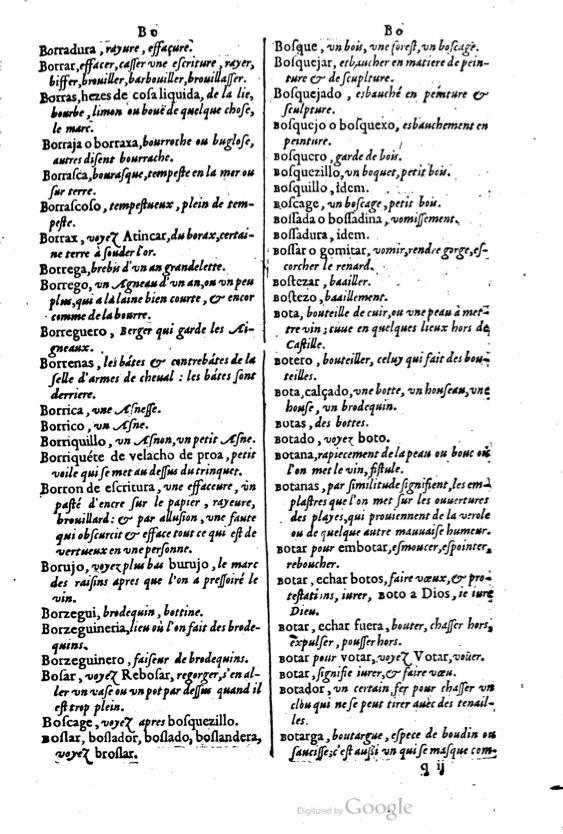 Bo
Borradura, rayure, effaçure.
Borrar, effacer, casser vne escriture, rayer,
biffer, brouiller, barbouiller, brouillasser.
Borras, hezes de cosa liquida, de la lie,
bourbe, limon ou bouë de quelque chose,
le marc.
Borraja o borraxa, bourroche ou buglose,
autres disent bourrache.
Borrasca, bourasque, tempeste en la mer ou
sur terre.
Borrascoso, tempestueux, plein de tem-
peste.
Borrax, voyez Atincar, du borax, certai-
ne terre à souder l'or.
Borrega, brebis d'vn an grandelette.
Borrego, vn Agneau d'vn an, ou vn peu
plus, qui a la laine bien courte, & encor
comme de la bourre.
Borreguero, Berger qui garde les Ai-
gneaux.
Borrenas, les bâtes & contrebâtes de la
selle d'armes de cheual : les bâtes sont
derriere.
Borrica, vne Asnesse.
Borrico, vn Asne.
Borriquillo, vn Asnon, vn petit Asne.
Borriquéte de velacho de proa, petit
voile qui se met au dessus du trinquet.
Borron de escritura, vne effaceure, vn
pasté d'encre sur le papier, rayeure,
brouillard : & par allusion, vne faute
qui obscurcit & efface tout ce qui est de
vertueux en vne personne.
Borujo, voyez plus bas burujo, le marc
des raisins apres que l'on a pressoiré le
vin.
Borzegui, brodequin, bottine.
Borzeguineria, lieu où l'on fait des brode-
quins.
Borzeguinero, faiseur de brodequins.
Bosar, voyez Rebosar, regorger, s'en al-
ler vn vase ou vn pot par dessus quand il
est trop plein.
Boscage, voyez apres bosquezillo.
Boslar, boslador, boslado, boslandera,
voyez broslar.
Bo
Bosque, vn bois, vne forest, vn boscage.
Bosquejar, esbaucher en matiere de pein-
ture & de scuplture.
Bosquejado, esbauché en peinture &
sculpture.
Bosquejo o bosquexo, esbauchement en
peinture.
Bosquero, garde de bois.
Bosquezillo, vn boquet, petit bois.
Bosquillo, idem.
Boscage, vn boscage, petit bois.
Bossada o bossadina, vomissement.
Bossadura, idem.
Bossar o gomitar, vomir, rendre gorge, es-
corcher le renard.
Bostezar, baailler.
Bostezo, baaillement.
Bota, bouteille de cuir, ou vne peau à met-
tre vin ; cuue en quelques lieux hors de
Castille.
Botero, bouteiller, celuy qui fait des bou-
teilles.
Bota, calçado, vne botte, vn houseau, vne
house, vn brodequin.
Botas, des bottes.
Botado, voyez boto.
Botana, rapiecement de la peau ou bouc où
l'on met le vin, fistule.
Botanas, par similitude signifient, les em-
plastres que l'on met sur les ouuertures
des playes, qui prouiennent de la verole
ou de quelque autre mauuaise humeur.
Botar pour embotar, esmoucer, espointer,
reboucher.
Botar, echar botos, faire vœux, & pro-
testations, iurer, Boto a Dios, ie iure
Dieu.
Botar, echar fuera, bouter, chasser hors,
expulser, pousser hors.
Botar pour votar, voyez Votar, voüer.
Botar, signifie iurer, & faire vœu.
Botador, vn certain fer pour chasser vn
clou qui ne se peut tirer auec des tenail-
les.
Botarga, boutargue, espece de boudin ou
saucisse ; c'est aussi vn qui se masque com-
q ij
Digitized by Google